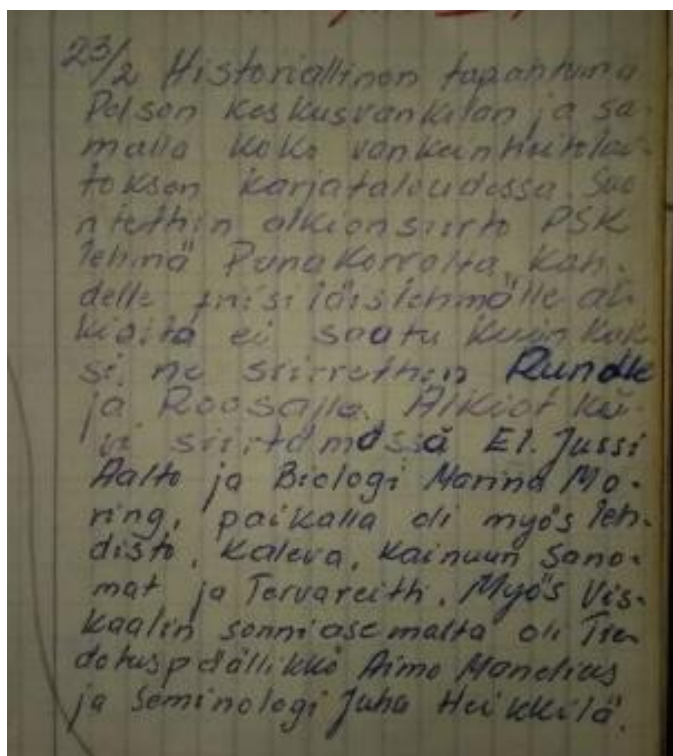 23/2 Historiallinen tapahtuma
Pelson Keskusvankilan ja sa-
malla koko vankeinhoitolai-
toksen karjataloudessa. Suo-
ritettiin alkionsiirto PSK
lehmä Punakorvolta kah-
delle
koita ei saatu kuin kak
si, ne siirrettiin Rundle
ja Roosalle. Alkiot kä-
vi siirtämässä El. Jussi
Aalto ja Biologi Marina Mo-
ring, paikalla oli myös leh-
distö, Kaleva, Kainuun Sano-
mat ja Tervareitti. Myös Vis-
kaalin sonniasemalta oli Tie-
dotuspäällikkö Aimo Manelius
ja Seminologi Juha Heikkilä.